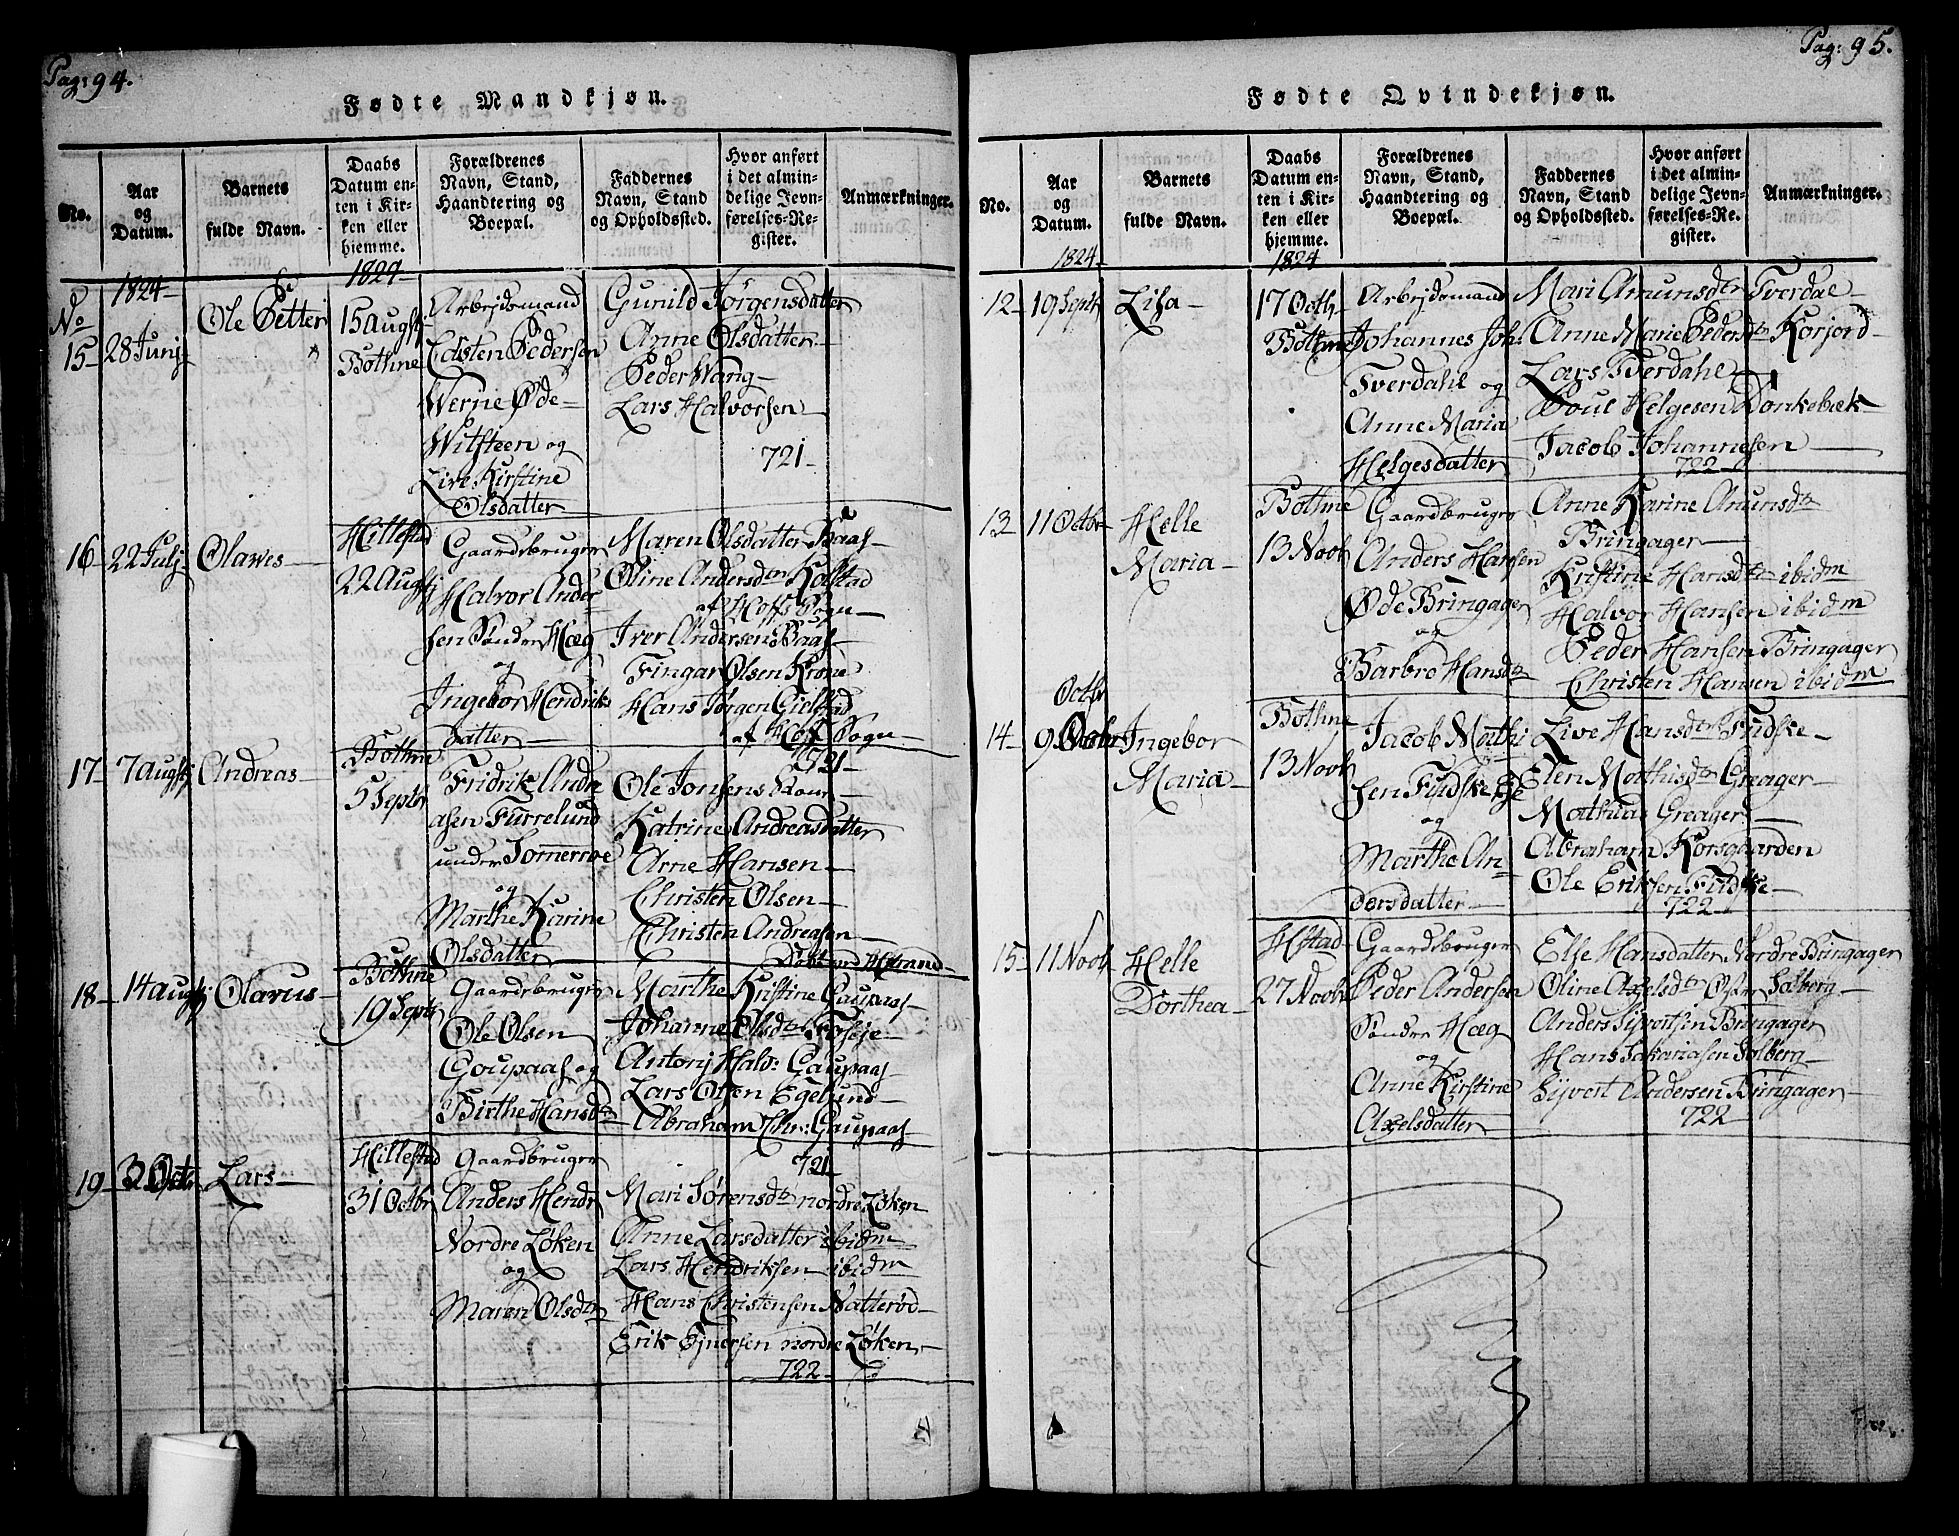 Pag: 94.
Fødte Mandkjøn.
No.
Aar og Datum.
Barnets fulde Navn.
Daabs Datum enten i Kirken eller hjemme.
Forældrenes Navn, Stand, Haandtering og Boepæl.
Faddernes Navn, Stand og Opholdssted.
Hvor anført i det almindelige Jevnførelses-Register.
Anmærkninger.
1824
No 15
28 Junj
Ole Petter
15 Augst
Bothne
Arbejdsmand
Edsten Pedersen
Werne Øde
Witsteen og
Live Kirstine
Olsdatter
Gunild Jörgensdatter
Anne Olsdatter
Peder Wang
Lars Halvorsen
721
16
22 Julj
Olawes
Hillestad
22 Augstj
Gaardbruger
Halvor Ander
sen Søndre Hæg
og
Ingebor Hendriks
datter
Maren Olsdatter Baas
Oline Andersdtr Kolstad
af Hoffs Sogn
Iver Andersen Baas
Fingar Olsen Krone
Hans Jørgen Gidstad
af Hoff Sogn
721
17
7 Augstj
Andreas
Bothne
5 Septbr
Fridrik Andre
asen Furrelund
under Sommerroe
og
Marthe Karine
Olsdatter
Ole Jonsens Kone
Katrine Andreasdatter
Arne Hansen
Christen Olsen
Christen Andreasen
18
14 Augstj
Olarus
Bothne
19 Septbr
Gaardsbruger
Ole Olsen
Goupaas og
Birthe Hansdtr
Marthe Kristine Gaupaas
Johanne Olsdtr
Antonj Halv: Gaupaas
Lars Olsen Egelund
Abraham Chr: Gaupaas
721
19
3 Octbr
Lars
Hillestad
31 Octbr
Gaardbruger
Anders Hendr
Nordre Løken
og
Maren Olsdtr
Mari Sørensdtr nordre Løken
Anne Larsdatter ibidm
Lars Hendriksen ibidm
Hans Christensen Natterød
Erik Ejnersen nordre Løken
722
Pag: 95.
Fødte Qvindekjøn.
No.
Aar og Datum.
Barnets fulde Navn.
Daabs Datum enten i Kirken eller hjemme.
Forældrenes Navn, Stand, Haandtering og Boepæl.
Faddernes Navn, Stand og Opholdssted.
Hvor anført i det almindelige Jevnførelses-Register.
Anmærkninger.
1824
1824
12
19 Septbr
Lisa
17 Octbr
Bothne
Arbejdsmand
Johannes Joh:
Tverdahl og
Anne Maria
Helgesdatter
Mari Amunsdtr Tverdal
Anne Marie Pedersdtr Korjord
Lars Tverdahl
Poul Helgesen Donkebæk
Jacob Johannesen
722
13
11 Octbr
Helle
Maria
Bothne
13 Novbr
Gaardbruger
Anders Hansen
Øde Bringager
og
Barbro Hansdtr
Anne Karine Amunsdtr
Bringager
Kristine Hansdtr ibidm
Halvor Hansen ibidm
Peder Hansen Bringager
Christen Hansen ibidm
14
9 Octbr
Ingebor
Maria
Bothne
13 Novbr
Jacob Mathi
sen Fudske
og
Marthe An
dersdatter
Live Hansdtr Fudske
Elen Mathisdtr Greager
Mathias Greager
Abraham Korsgaarden
Ole Eriksen Fudske
722
15
11 Novbr
Helle
Dorthea
Hstad
27 Novbr
Gaardsbruger
Peder Andersen
Søndre Hæg
og
Anne Kirstine
Axelsdatter
Else Hansdatter Nordre Bringager
Oline Axelsdtr Solberg
Anders Syvertsen Bringager
Hans Sakariasen Solberg
Syvert Andersen Bringager
722